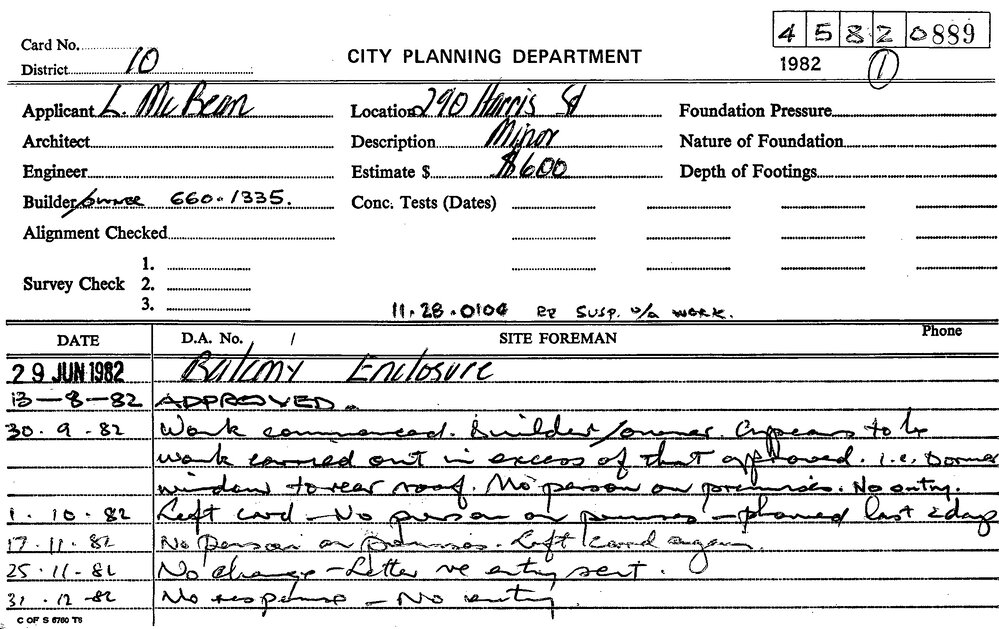 45820889
Card No.
District 10
CITY PLANNING DEPARTMENT
1982 1
Applicant L. McBean Location 290 Harris St Foundation Pressure
Architect Description Minor Nature of Foundation
Engineer Estimate $ $600 Depth of Footings
Builder/owner 660.1335. Conc. Tests (Dates)
Alignment Checked
1.
Survey Check 2.
3.
11.28.0104 RE SUSP. u/a WORK.
DATE D.A. No. / SITE FOREMAN Phone
29 JUN 1982 Balcony Enclosure
13-8-82 APPROVED.
30.9.82 Work commenced. Builder/owner. Appears to be
work carried out in excess of that approved. i.e. Dormer
window to rear roof. No person on premises. No entry.
1.10.82 Left card - No person on premises - phoned last 2 days
17.11.82 No person on premises. Left card again.
25.11.82 No change - Letter re entry sent.
31.12.82 No response - No entry
C OF S 6760 T6